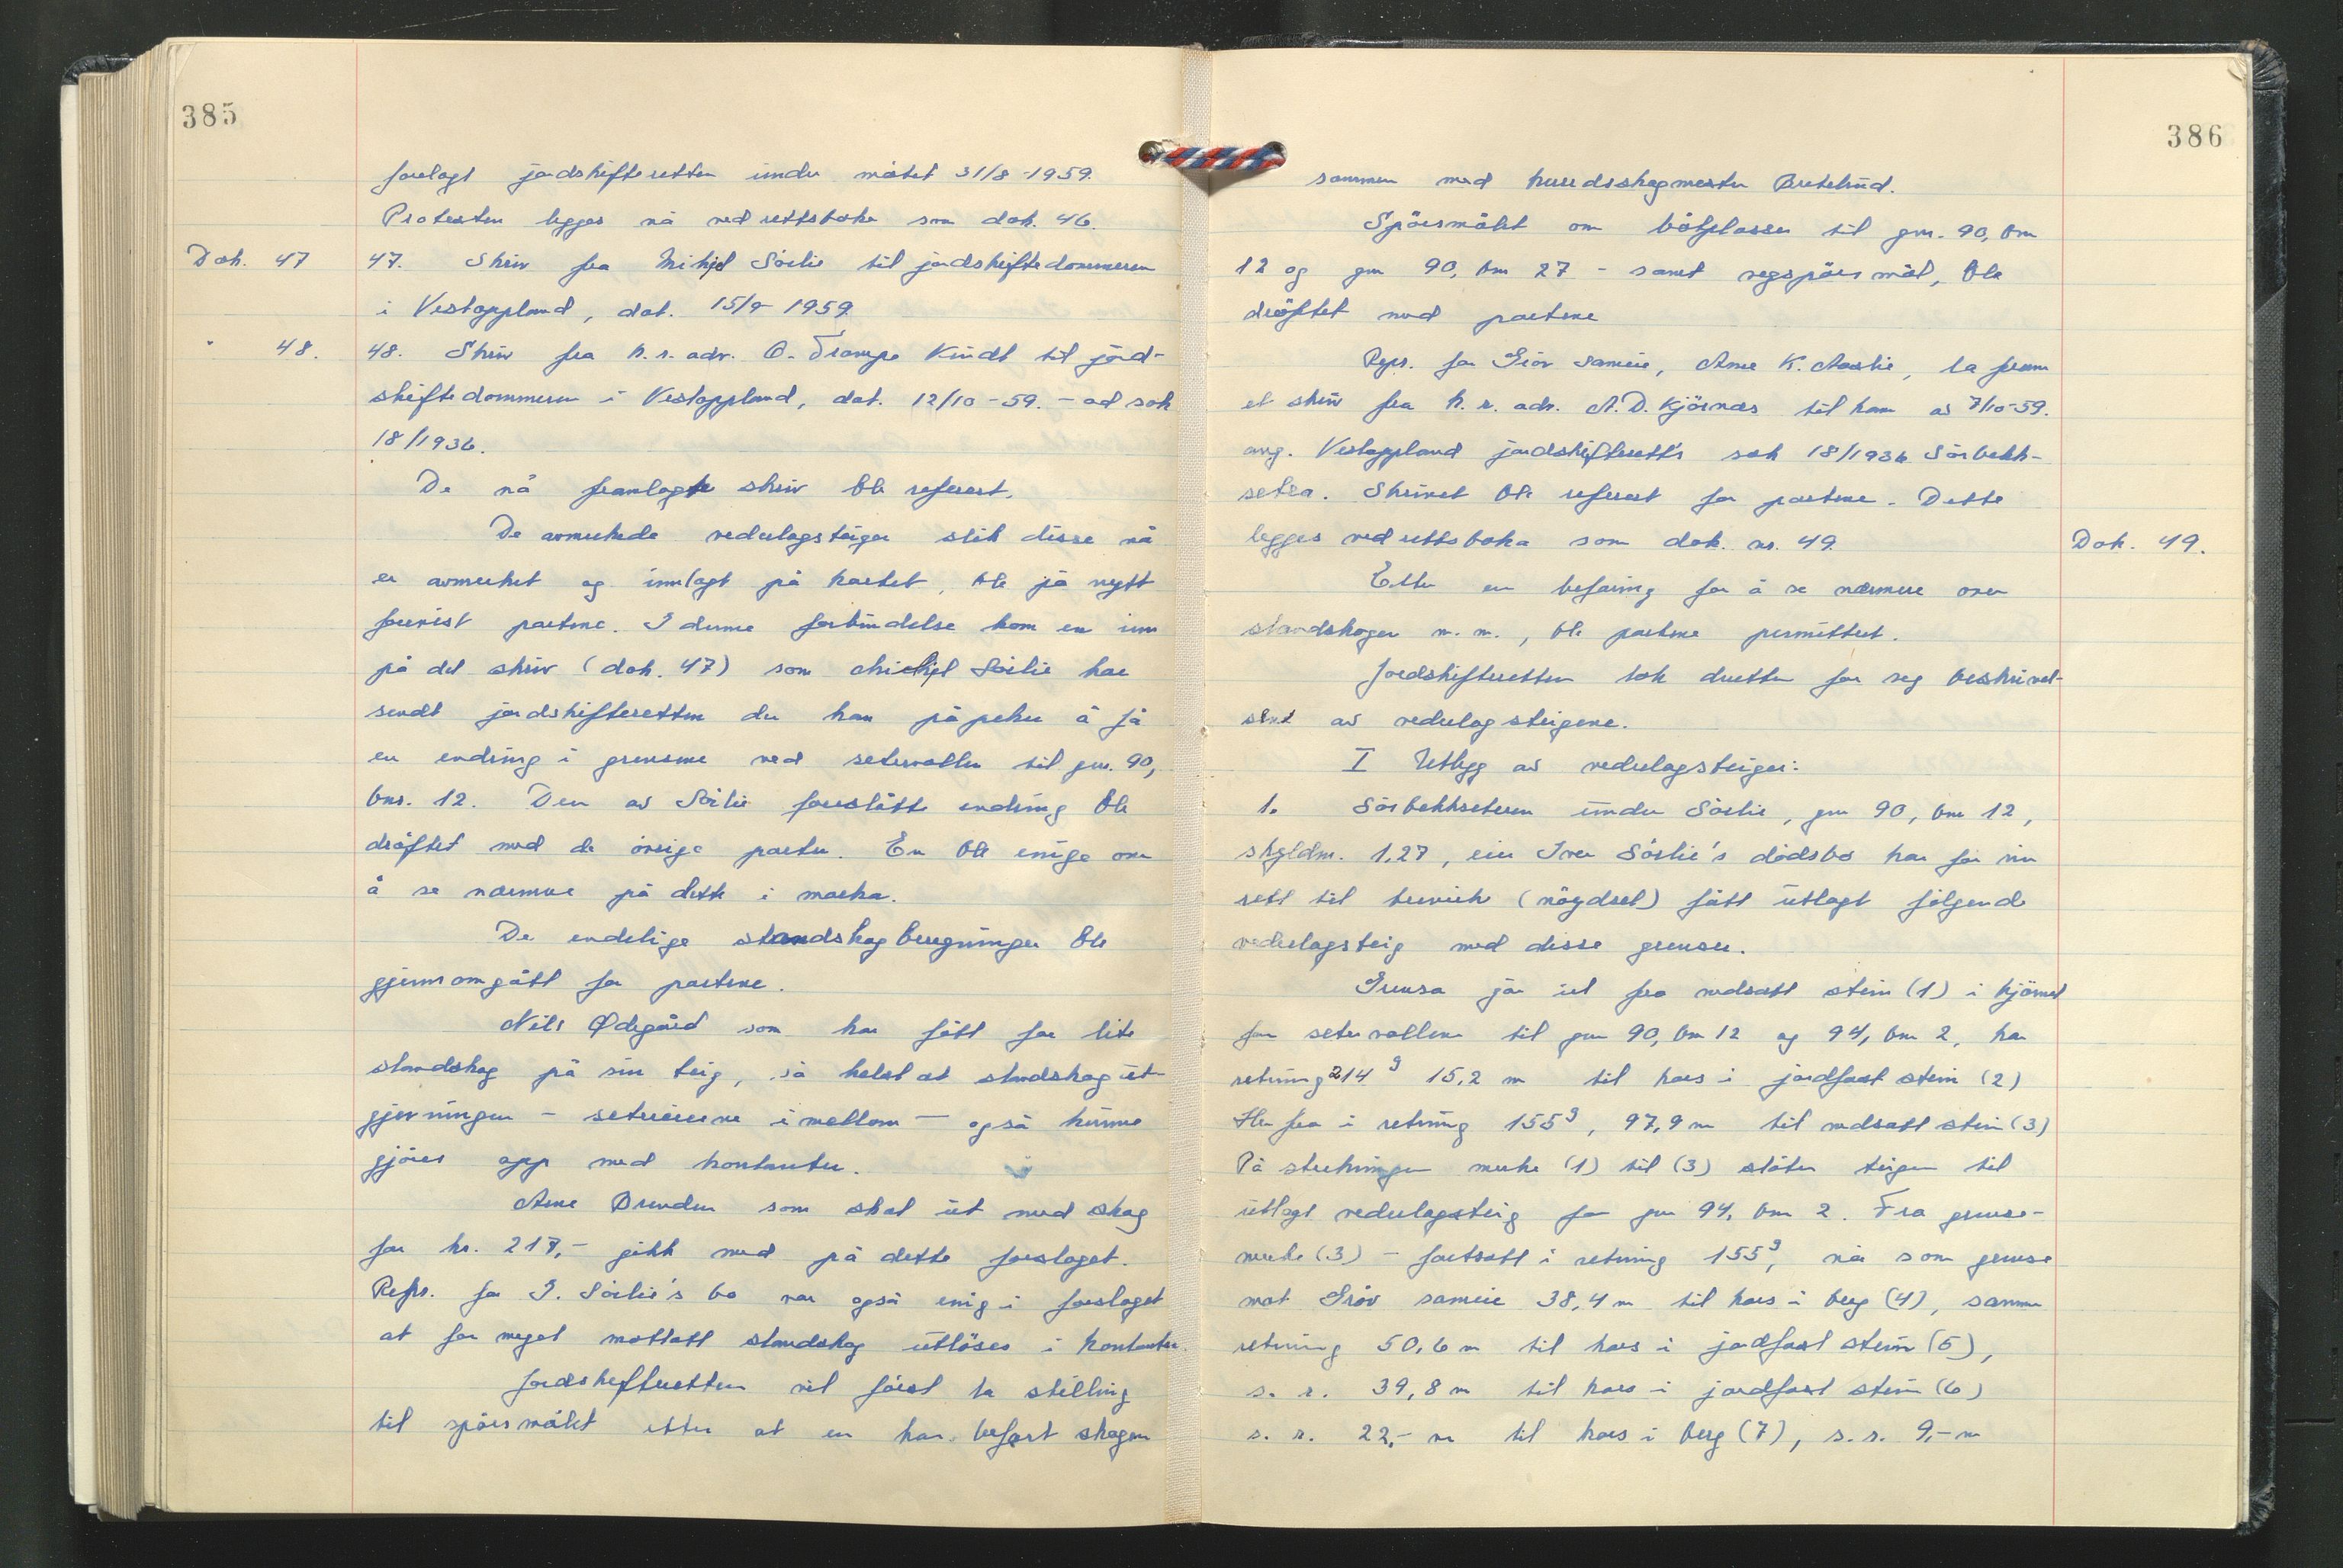 385
forelagt jordskifteretten under møtet 31/8-1959.
Protesten legges nå ved rettsboka som dok. 46.
Dok. 47 47. Skriv fra Mikjel Sörlie til jordskiftedommeren
i Vestoppland, dat. 15/9-1959.
" 48. 48. Skriv fra h.r. adv. O. Trampe Kindt til jord-
skiftedommeren i Vestoppland, dat. 12/10-59. - ad sak
18/1936.
De nå framlagte skriv ble referert.
De avmerkede vederlagsteiger slik disse nå
er avmerket og innlagt på kartet, ble på nytt
forevist partene. I denne forbindelse kom en inn
på det skriv (dok. 47) som Mikjel Sörlie har
sendt jordskifteretten der han påpeker å få
en endring i grensene ved setervollen til gnr. 90,
bnr. 12. Den av Sörlie foreslåtte endring ble
dröftet med de övrige parter. En ble enige om
å se nærmere på dette i marka.
De endelige standskogberegninger ble
gjennomgått for partene.
Nils Ødegård som har fått for lite
standskog på sin teig, så helst at standskogut-
gjevningen - setereierne imellom - også kunne
gjöres opp med kontanter.
Arne Brenden som skal ut med skog
for kr. 217,- gikk med på dette forslaget.
Repr. for I. Sörlie's bo var også enig i forslaget
at for meget mottatt standskog utlöses i kontanter.
Jordskifteretten vil först ta stilling
til spörsmålet etter at en har befart skogen
386
sammen med herredsskogmester Bretelrud.
Spörsmålet om båtplasser til gnr. 90, bnr
12 og gnr 90, bnr 27 - samt vegspörsmål, ble
dröftet med partene
Repr. for Gröv sameie, Arne K. Aaslie, la fram
et skriv fra h.r. adv. A.D. Kjörnæs til ham av 7/10-59.
ang. Vestoppland jordskifterett's sak 18/1936 Sörbekk-
setra. Skrivet ble referert for partene. Dette
legges ved rettsboka som dok. nr. 49. Dok. 49.
Etter en befaring for å se nærmere over
standskogen m.m., ble partene permittert.
Jordskifteretten tok deretter for seg beskrivel-
sene av vederlagsteigene.
I Utlegg av vederlagsteiger:
1. Sörbekkseteren under Sörlie, gnr 90, bnr 12,
skyldm. 1,27, eier Iver Sörlie's dödsbo har for sin
rett til trevirke (nöydsel) fått utlagt fölgende
vederlagsteig med disse grenser.
Grensa går ut fra nedsatt stein (1) i hjörnet
for setervollene til gnr 90, bnr 12 og 94, bnr 2, har
retning 214 g 15,2 m til kors i jordfast stein (2)
Herfra i retning 155 g, 97,9 m til nedsatt stein (3)
På strekningen merke (1) til (3) stöter teigen til
utlagt vederlagsteig for gnr 94, bnr 2. Fra grense-
merke (3) - fortsatt i retning 155 g, nå som grense
mot Gröv sameie 38,4 m til kors i berg (4), samme
retning 50,6 m til kors i jordfast stein (5),
s. r. 39,8 m til kors i jordfast stein (6)
s. r. 22,- m til kors i berg (7), s.r. 9,- m